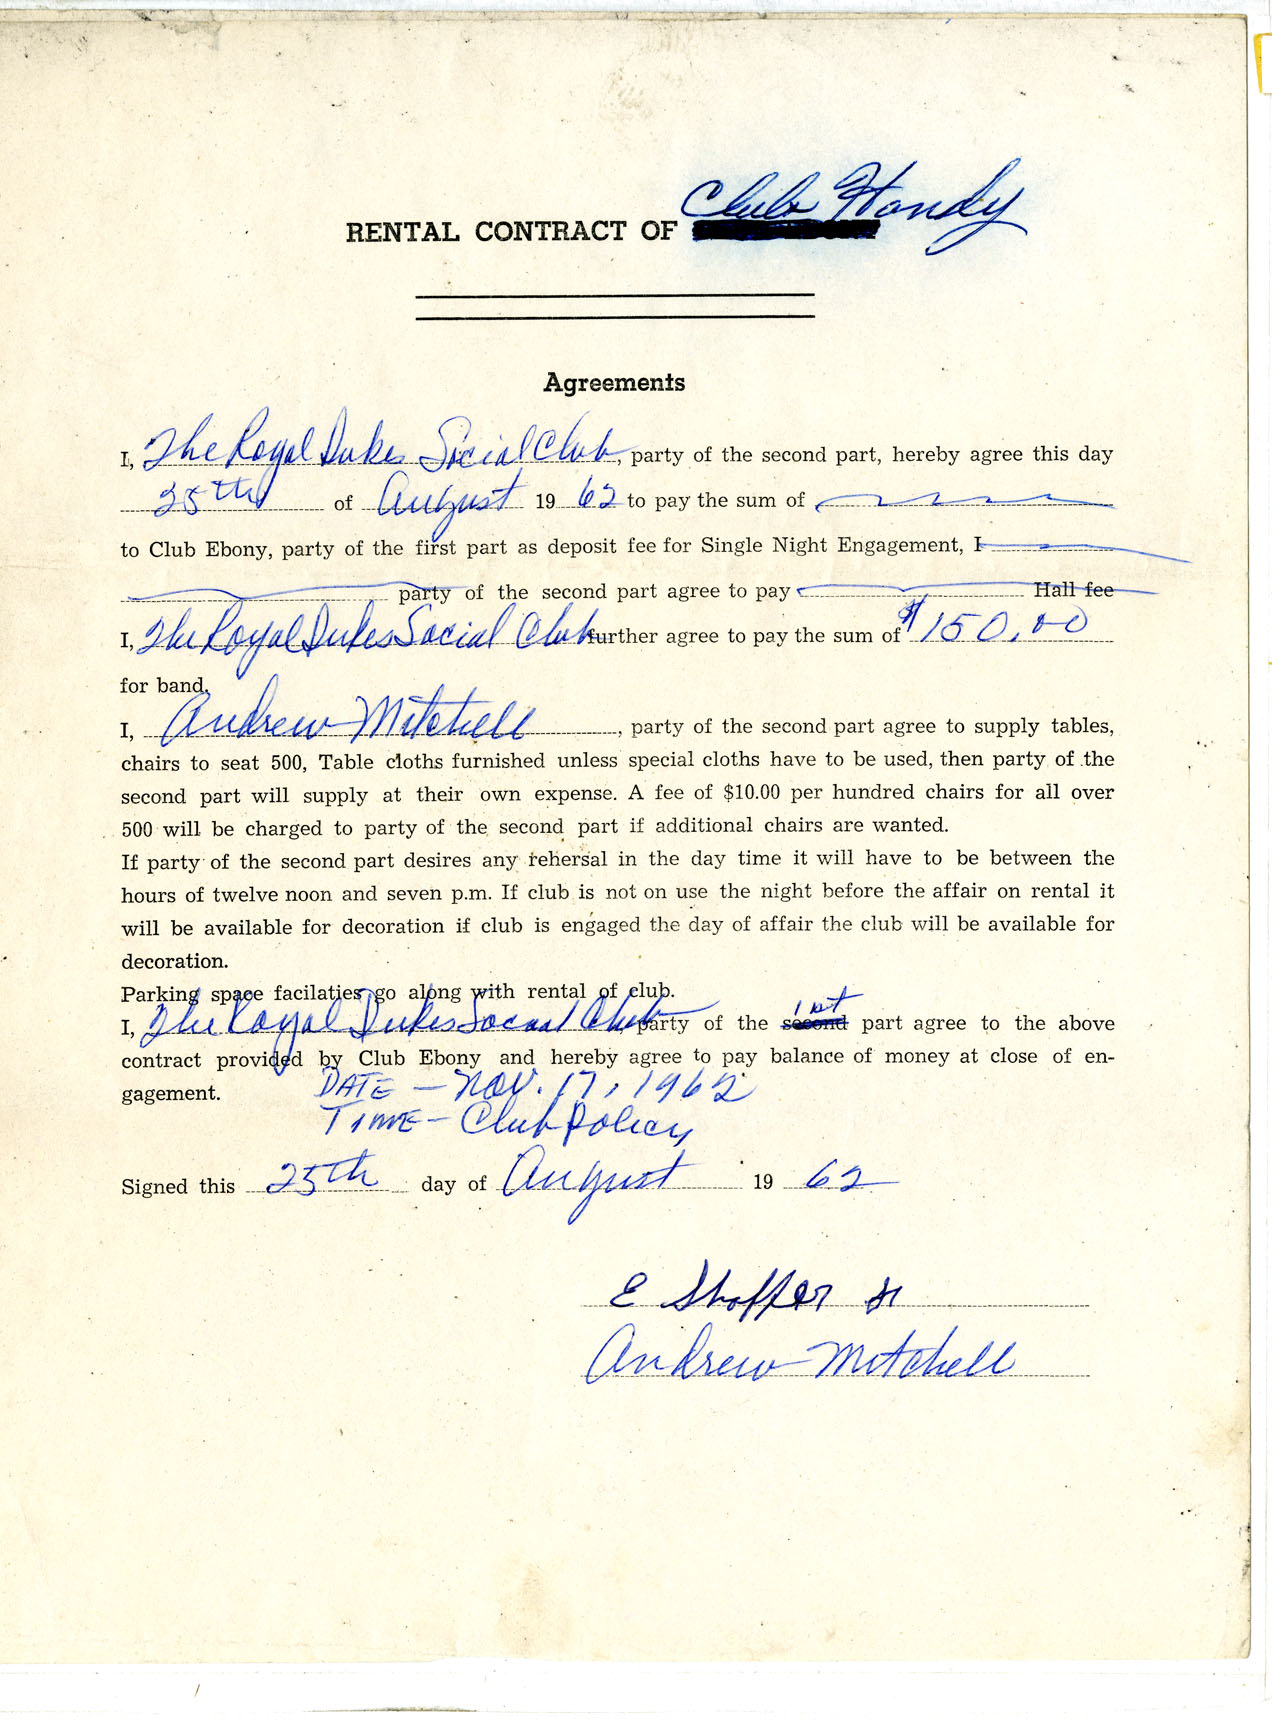 RENTAL CONTRACT OF Club Handy
Agreements
I, The Royal Dukes Social Club, party of the second part, hereby agree this day
25th of August 19 62 to pay the sum of
to Club Ebony, party of the first part as deposit fee for Single Night Engagement, I
party of the second part agree to pay Hall fee
I, The Royal Dukes Social Club further agree to pay the sum of $150.00
for band.
I, Andrew Mitchell, party of the second part agree to supply tables,
chairs to seat 500, Table cloths furnished unless special cloths have to be used, then party of the
second part will supply at their own expense. A fee of $10.00 per hundred chairs for all over
500 will be charged to party of the second part if additional chairs are wanted.
If party of the second part desires any rehersal in the day time it will have to be between the
hours of twelve noon and seven p.m. If club is not on use the night before the affair on rental it
will be available for decoration if club is engaged the day of affair the club will be available for
decoration.
Parking space facilaties go along with rental of club.
I, The Royal Dukes Social Club party of the second 1st part agree to the above
contract provided by Club Ebony and hereby agree to pay balance of money at close of en-
gagement. DATE - Nov. 17, 1962
TIME - Club Policy
Signed this 25th day of August 19 62
E Shaffer Jr
Andrew Mitchell